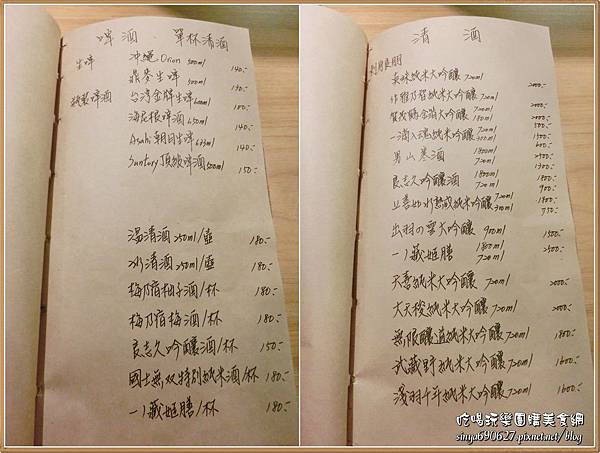 啤酒、單杯清酒
生啤 沖繩 Orion 500ml 140.-
鼎麥生啤 500ml 130.-
瓶裝啤酒 台灣金牌生啤 600ml 100.-
海尼根啤酒 650ml 140.-
Asahi 朝日生啤 633ml 140.-
Suntory 頂級啤酒 500ml 150.-
湯清酒 250ml/壺 180.-
冰清酒 250ml/壺 180.-
梅乃宿柚子酒/杯 180.-
梅乃宿梅酒/杯 180.-
良志久吟釀酒/杯 150.-
國士無双特別純米酒/杯 180.-
一ノ藏姬膳/杯 180.-
清酒
美味純米大吟釀 720ml
純米大吟釀 720ml 2000.-
賀茂鶴金箔大吟釀 720ml 2000.-
180ml 500.-
一滴入魂純米吟釀 720ml 1500.-
300ml 600.-
男山寒酒 1800ml 2500.-
720ml 1300.-
良志久吟釀酒 1800ml 1800.-
720ml 900.-
720ml 1800.-
300ml 750.-
出羽の雪大吟釀 900ml 1500.-
一ノ藏姬膳 1800ml 2500.-
720ml
天喜純米大吟釀 720ml 2000.-
大天稜純米大吟釀 720ml 2000.-
無限釀造純米大吟釀 720ml 1800.-
武藏野純米大吟釀 720ml 1600.-
淺羽千年純米大吟釀 720ml 1600.-
吃喝玩樂團購美食網
sinya690627.pixnet.net/blog